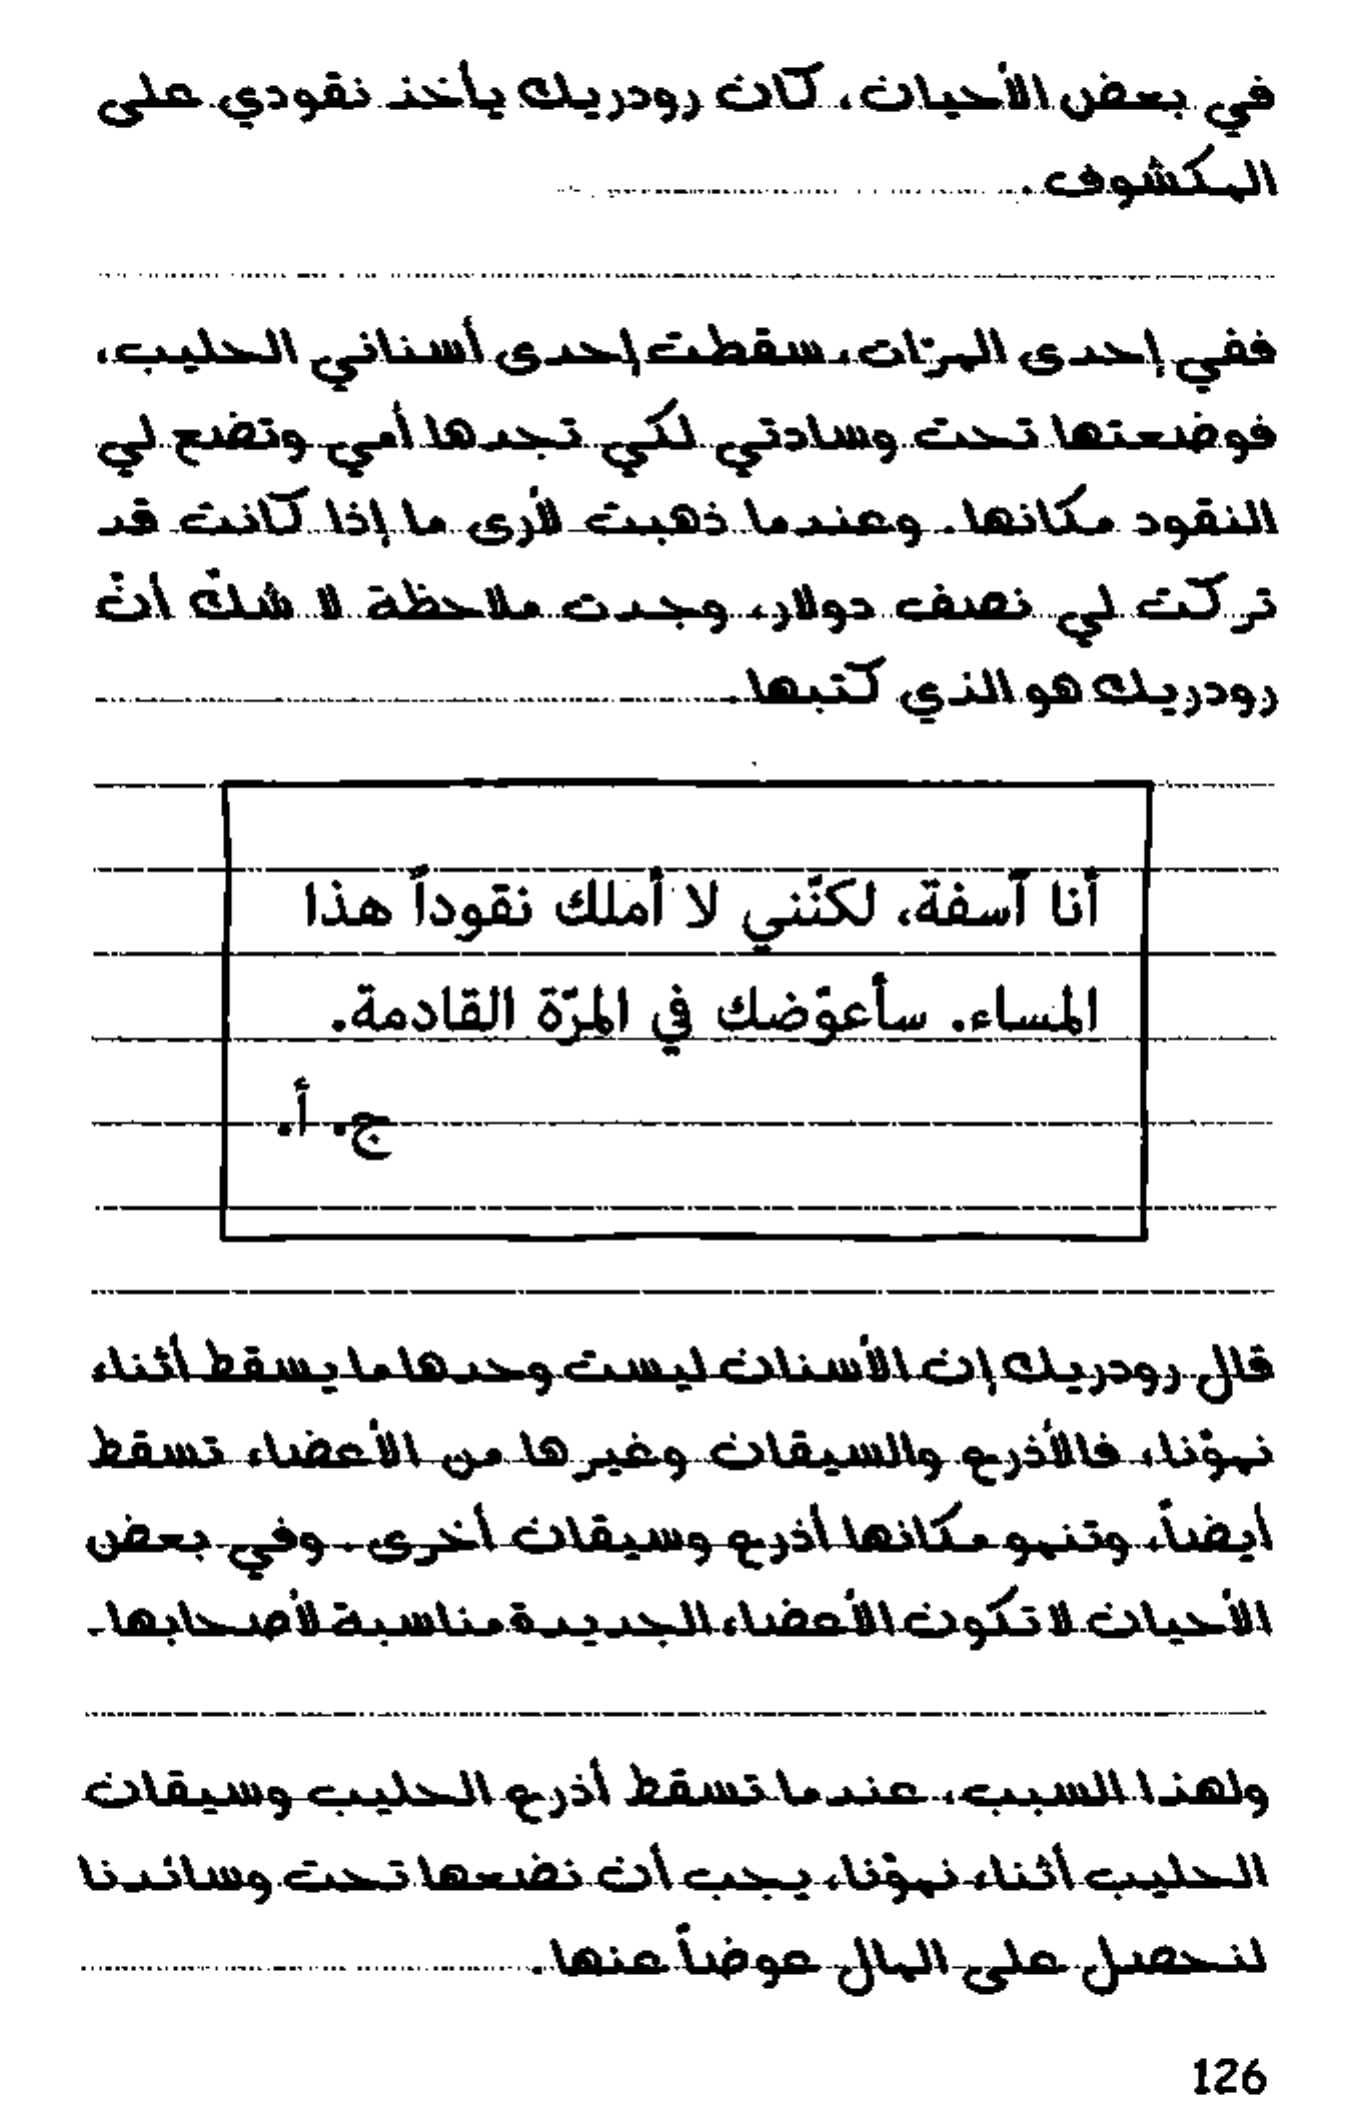 في بعض الأحيان، كان رودريك يأخذ نقودي على
المكشوف.
ففي إحدى المرّات، سقطت إحدى أسناني الحليب،
فوضعتها تحت وسادتي لكي تجدها أمي وتضع لي
النقود مكانها. وعندما ذهبت لأرى ما إذا كانت قد
تركت لي نصف دولار، وجدت ملاحظة لا شكّ أنّ
رودريك هو الذي كتبها.
أنا آسفة، لكنّني لا أملك نقوداً هذا
المساء. سأعوّضك في المرّة القادمة.
ج. أ.
قال رودريك إن الأسنان ليست وحدها ما يسقط أثناء
نموّنا، فالأذرع والسيقان وغيرها من الأعضاء تسقط
أيضاً، وتنمو مكانها أذرع وسيقان أخرى. وفي بعض
الأحيان لا تكون الأعضاء الجديدة مناسبة لأصحابها.
ولهذا السبب، عندما تسقط أذرع الحليب وسيقان
الحليب أثناء نموّنا، يجب أن نضعها تحت وسائدنا
لنحصل على المال عوضاً عنها.
126